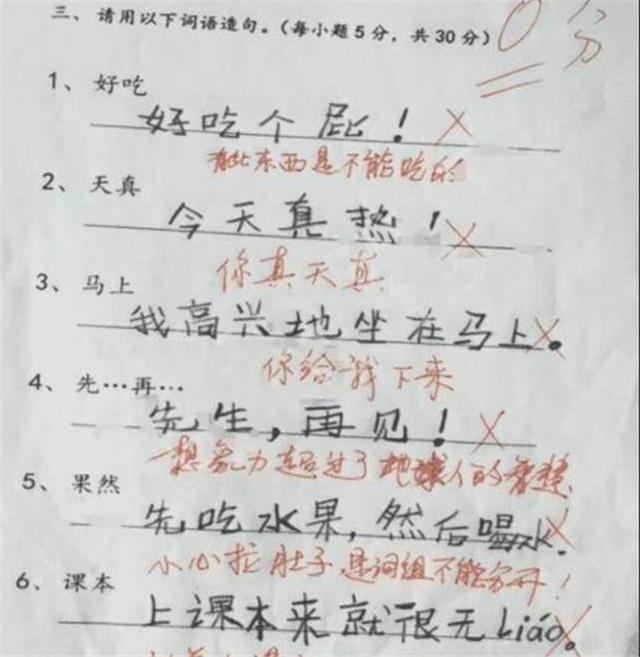 三、请用以下词语造句。（每小题5分，共30分）
0分
1、好吃
好吃个屁！
有些东西是不能吃的
2、天真
今天真热！
你真天真
3、马上
我高兴地坐在马上。
你给我下来
4、先…再…
先生，再见！
想象力超过了地球人的智慧
5、果然
先吃水果，然后喝水.
小心拉肚子，是词组不能分开！
6、课本
上课本来就很无Liáo。